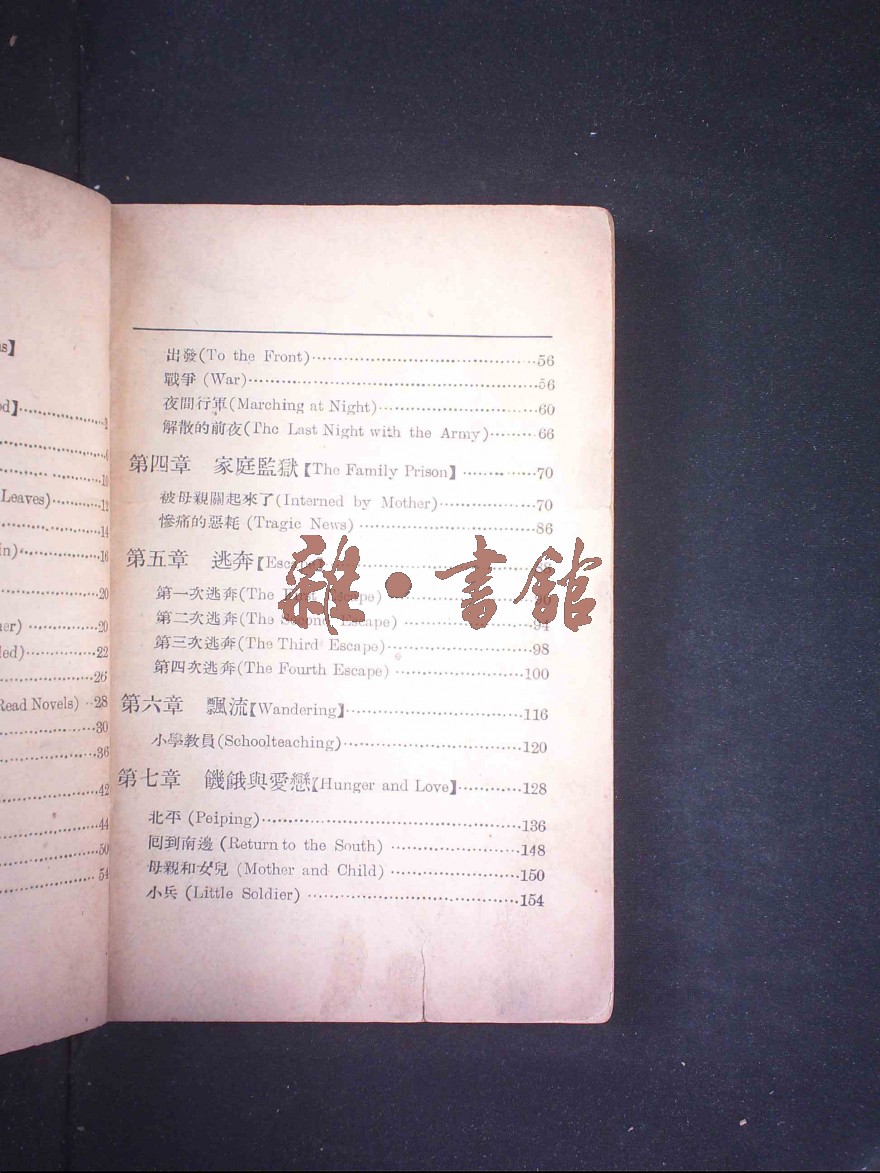 s】
d】…2
6
10
Leaves)…12
14
in)…16
20
er)…20
led)…22
26
Read Novels)…28
30
36
42
44
50
54
出發(To the Front)…56
戰爭 (War)…56
夜間行軍(Marching at Night)…60
解散的前夜(The Last Night with the Army)…66
第四章 家庭監獄【The Family Prison】…70
被母親關起來了(Interned by Mother)…70
慘痛的惡耗 (Tragic News)…86
第五章 逃奔【Escape】
第一次逃奔(The First Escape)
第二次逃奔(The Second Escape)…94
第三次逃奔(The Third Escape)…98
第四次逃奔(The Fourth Escape)…100
第六章 飄流【Wandering】…116
小學教員(Schoolteaching)…120
第七章 饑餓與愛戀【Hunger and Love】…128
北平 (Peiping)…136
囘到南邊 (Return to the South)…148
母親和女兒 (Mother and Child)…150
小兵 (Little Soldier)…154
雜·書館